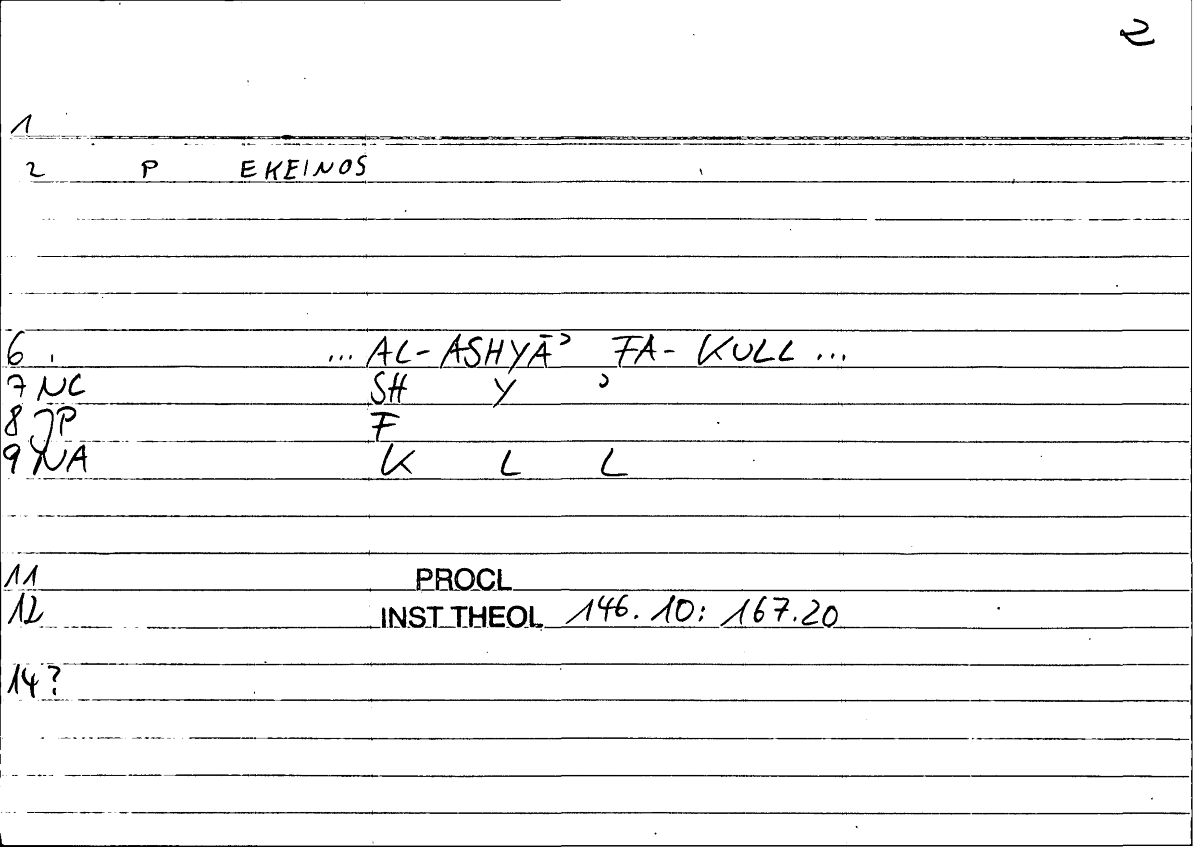 2
1
2 P EKEINOS
6 . ... AL-ASHYĀʾ FA-KULL ...
7 NC SH Y ʾ
8 JP F
9 NA K L L
11 PROCL
12 INST THEOL 146.10: 167.20
14?